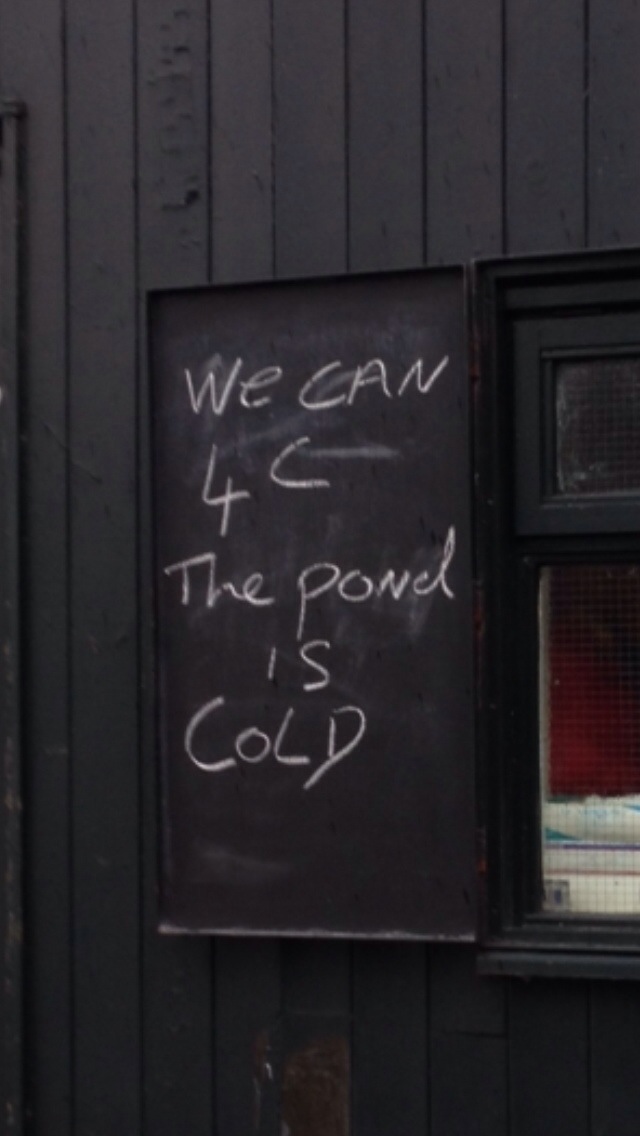 We CAN
4 C
The pond
is
COLD